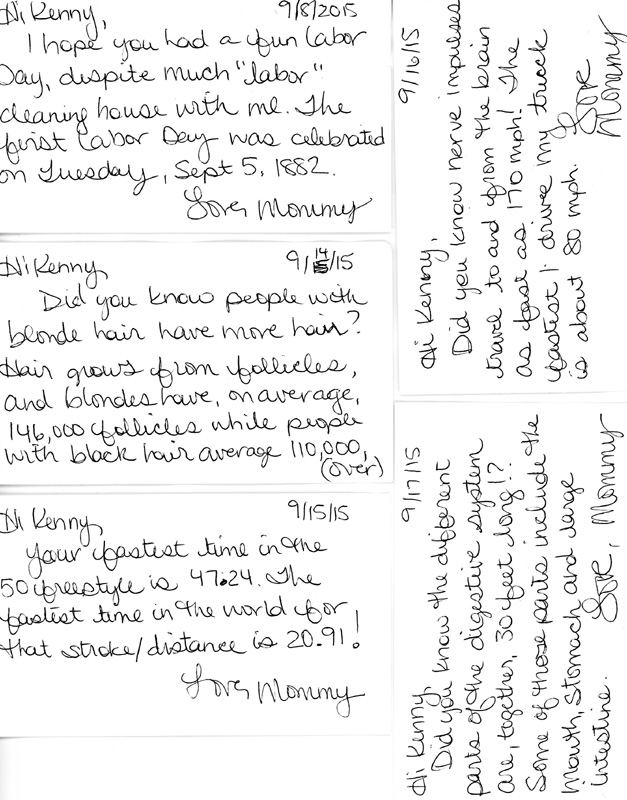 Hi Kenny,
9/8/2015
I hope you had a fun Labor
Day, despite much "labor"
cleaning house with me. The
first Labor Day was celebrated
on Tuesday, Sept 5, 1882.
Love, Mommy
Hi Kenny,
9/14/15
Did you know people with
blonde hair have more hair?
Hair grows from follicles,
and blondes have, on average,
146,000 follicles while people
with black hair average 110,000,
(over)
Hi Kenny,
9/15/15
Your fastest time in the
50 freestyle is 47.24. The
fastest time in the world for
that stroke/distance is 20.91!
Love, Mommy
9/16/15
Hi Kenny,
Did you know nerve impulses
travel to and from the brain
as fast as 170 mph! The
fastest I drive my truck
is about 80 mph.
Love
Mommy
9/17/15
Hi Kenny,
Did you know the different
parts of the digestive system
are, together, 30 feet long!?
Some of those parts include the
mouth, stomach and large
intestine.
Love, Mommy